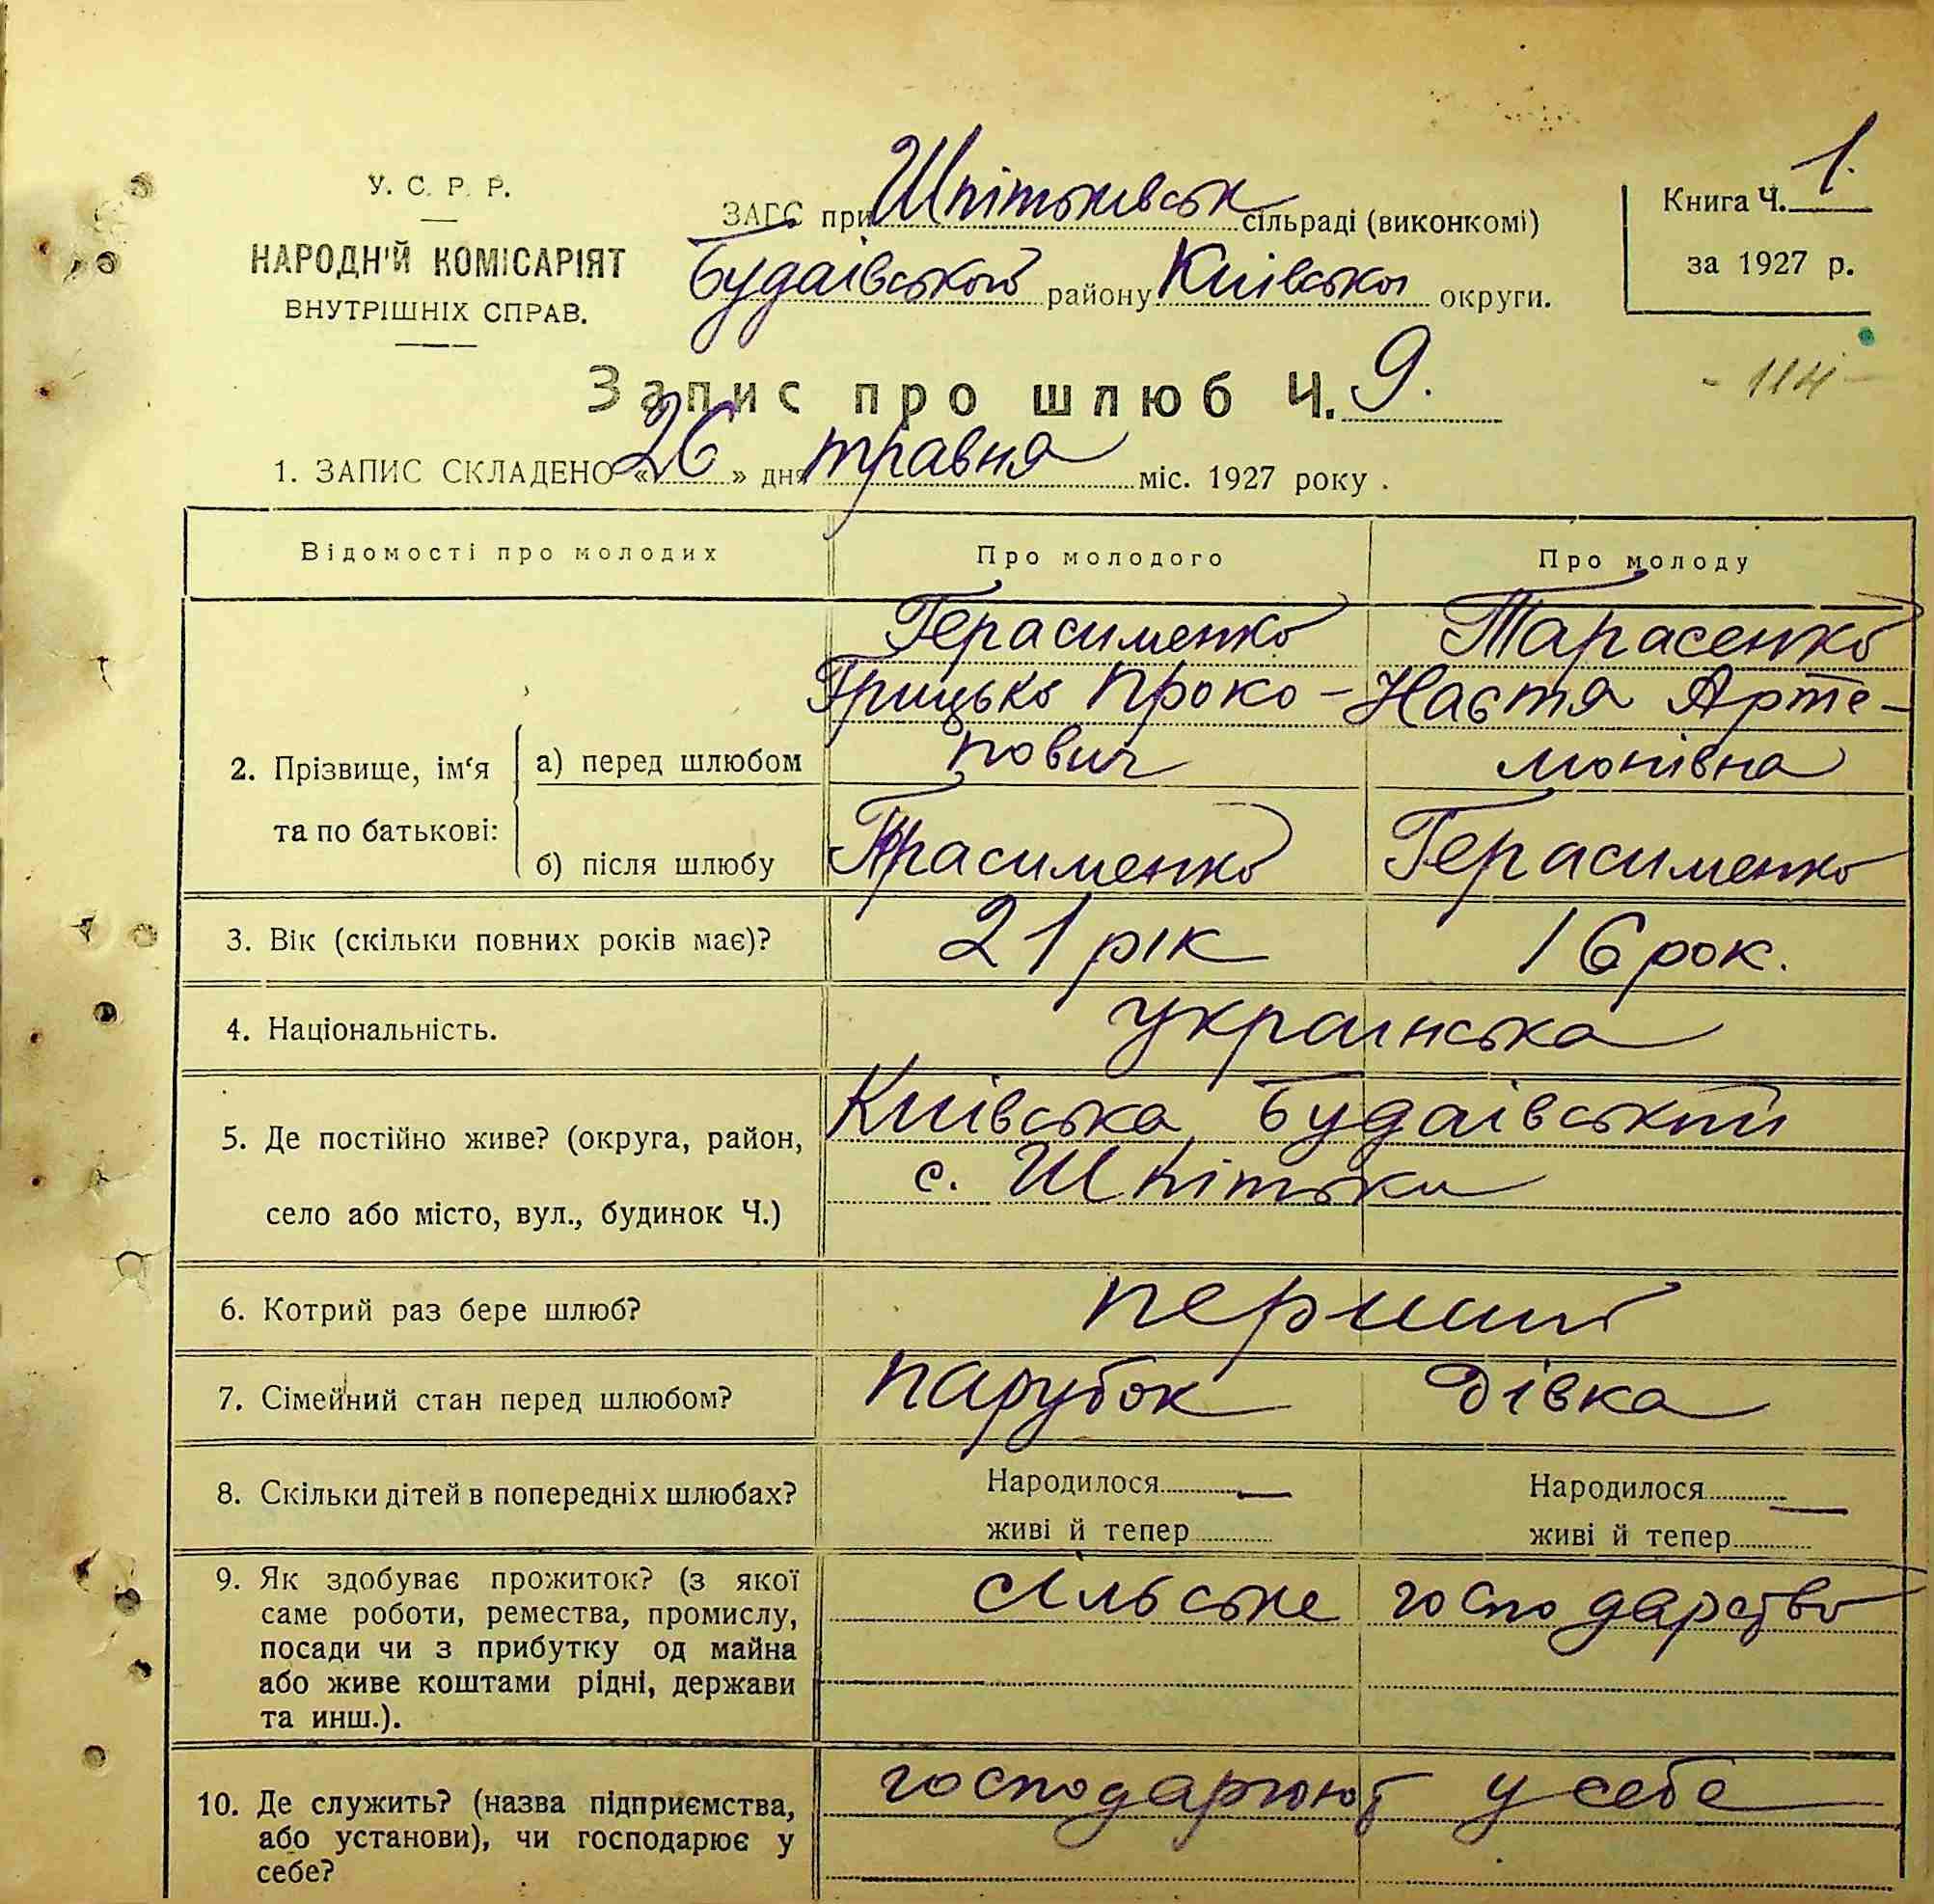 У. С. Р. Р.
НАРОДН'Й КОМІСАРІЯТ
ВНУТРІШНІХ СПРАВ.
ЗАГС при Шпітьківськ сільраді (виконкомі)
Будаівської району Київської округи.
Книга Ч. 1.
за 1927 р.
- 114 -
Запис про шлюб Ч. 9.
1. ЗАПИС СКЛАДЕНО «26» дня травня міс. 1927 року.
Відомості про молодих Про молодого Про молоду
2. Прізвище, ім'я та по батькові:
а) перед шлюбом
Герасименко Тарасенко
Грицько Проко- Настя Арте-
пович монівна
б) після шлюбу Герасименко Герасименко
3. Вік (скільки повних років має)? 21 рік 16 рок.
4. Національність. українська
5. Де постійно живе? (округа, район, Київська, Будаівський
село або місто, вул., будинок Ч.) с. Шпітьки
6. Котрий раз бере шлюб? перший
7. Сімейний стан перед шлюбом? парубок дівка
8. Скільки дітей в попередніх шлюбах? Народилося — Народилося —
живі й тепер живі й тепер
9. Як здобуває прожиток? (з якої сільське господарство
саме роботи, ремества, промислу,
посади чи з прибутку од майна
або живе коштами рідні, держави
та инш.).
10. Де служить? (назва підприємства, господарюют у себе
або установи), чи господарює у
себе?